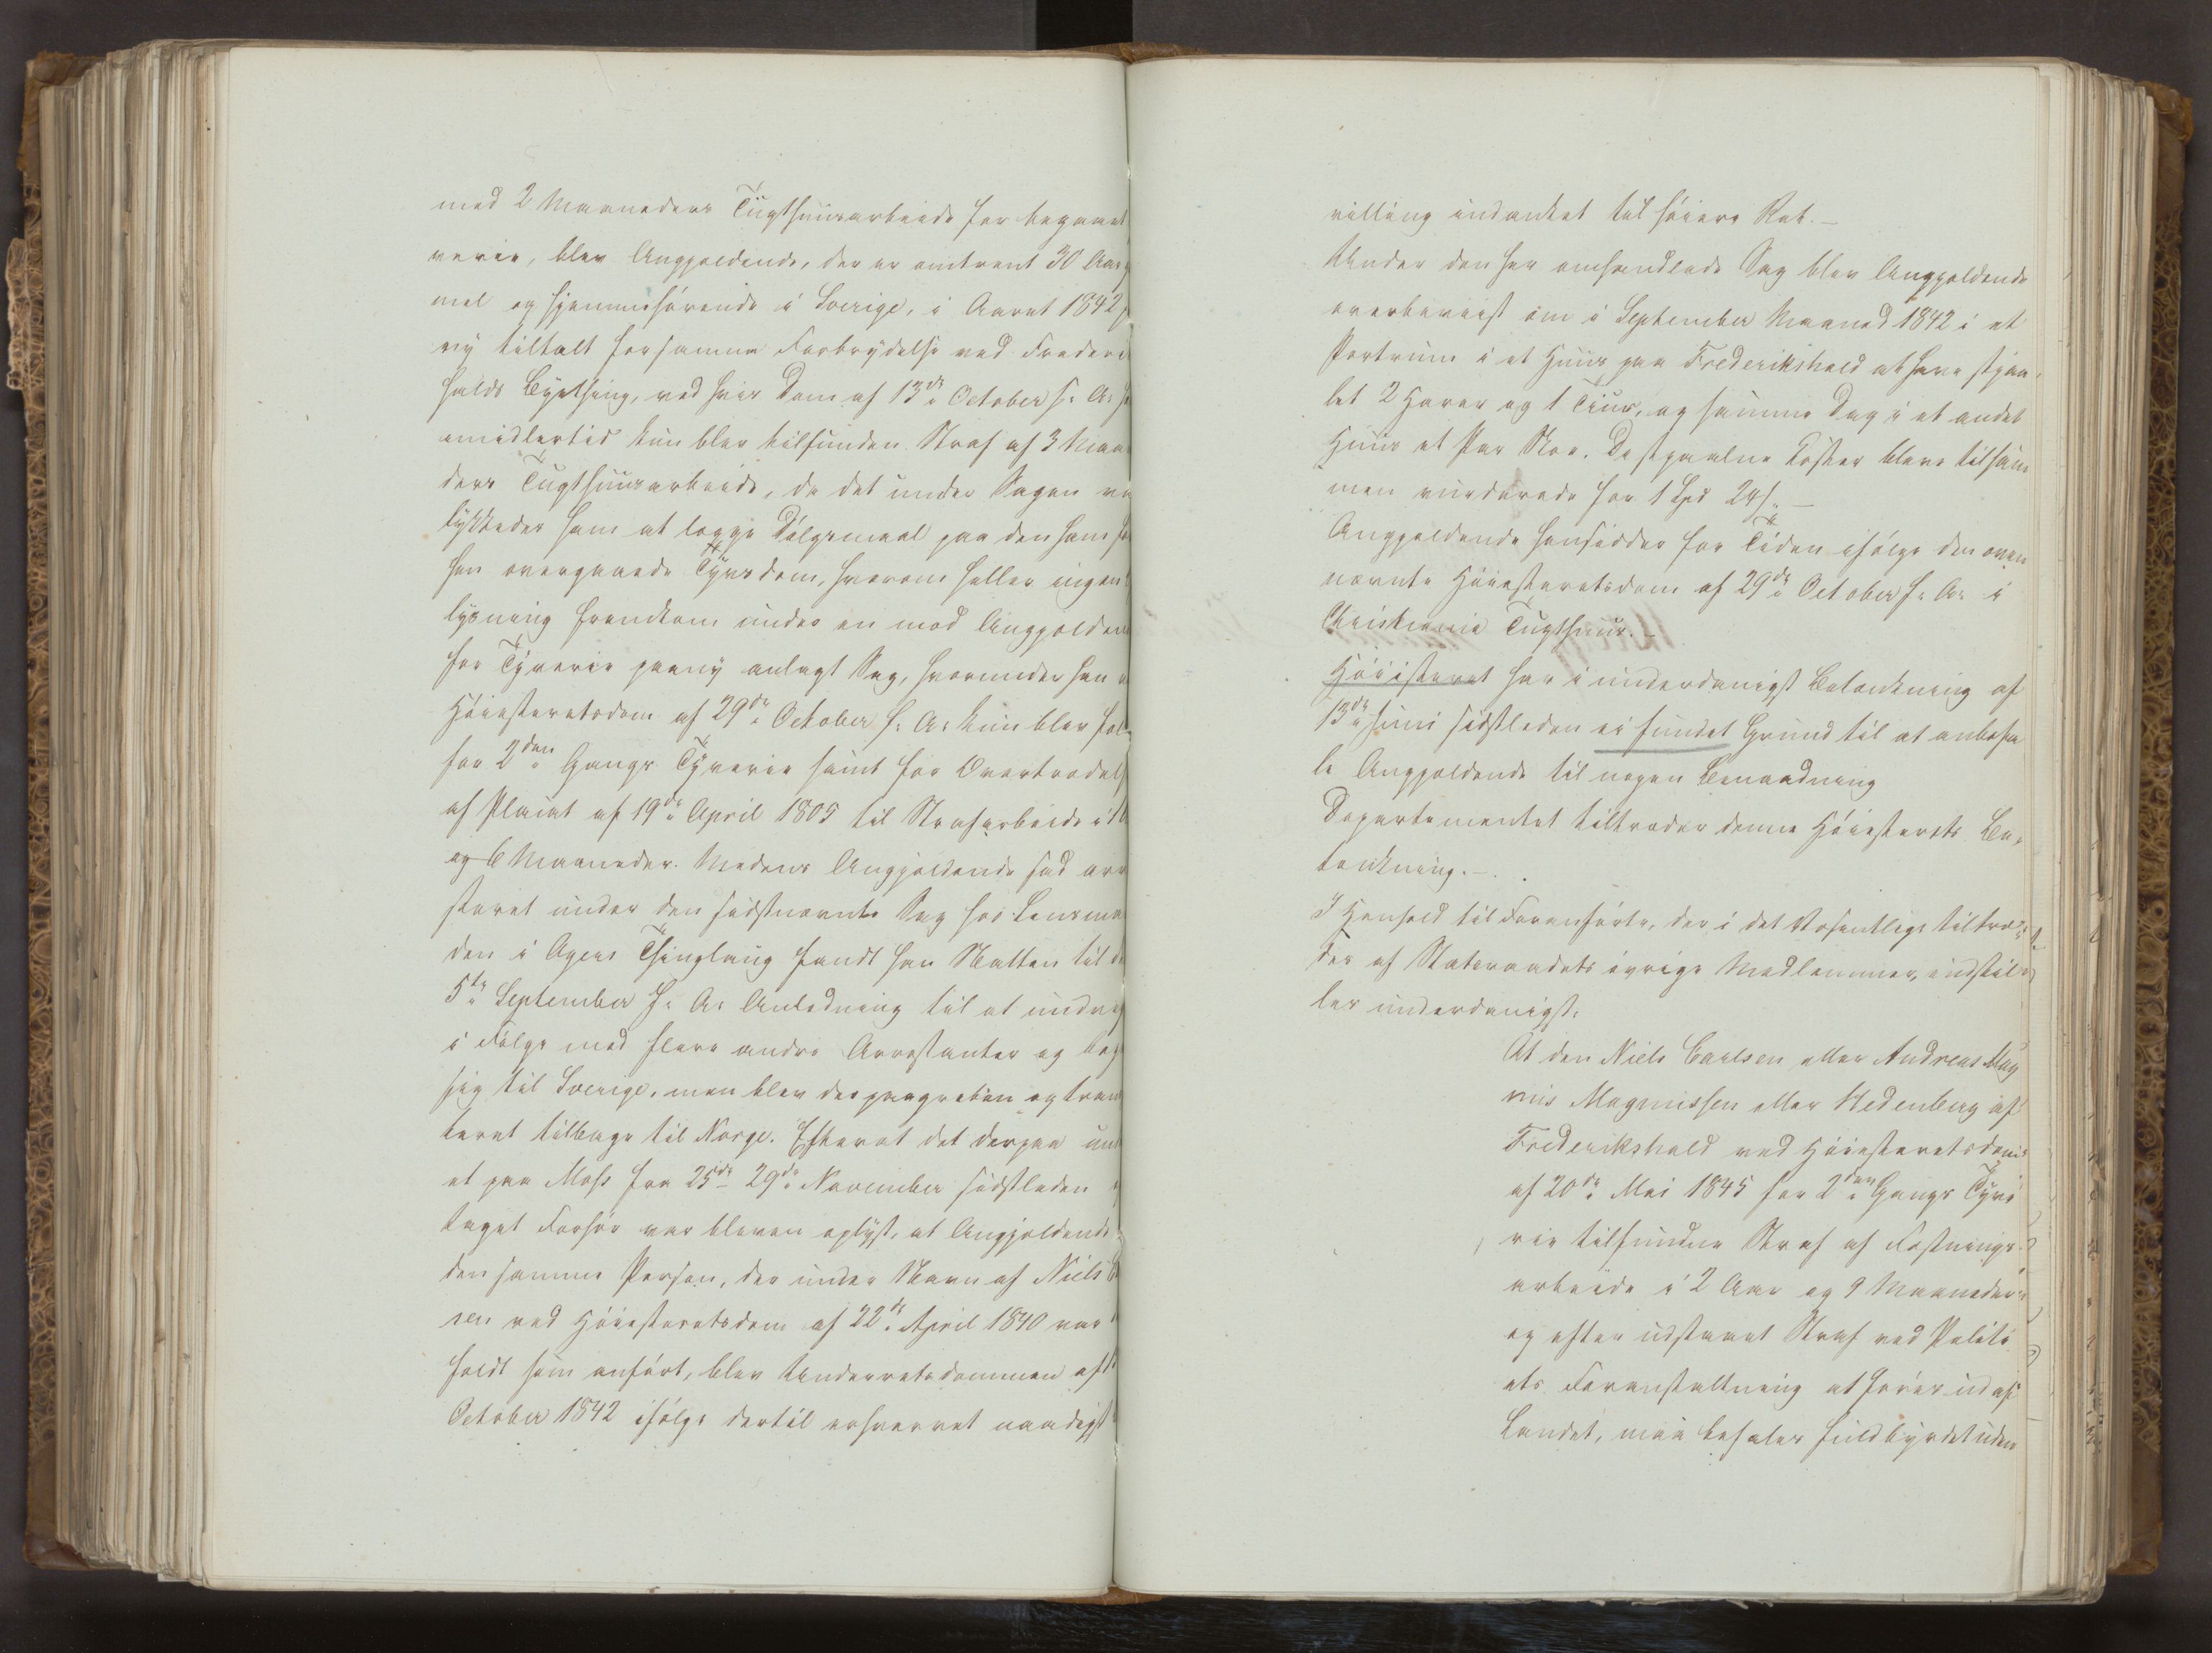 med 2 Maaneders Tugthuusarbeide for begaaet
verie, blev Angjeldende, der er omtrent 30 Aar g
mel og hjemmehørende i Sverige, i Aaret 1842 p
ny tiltalt for samme Forbrydelse ved Frederi
halds Byething, ved hvis Dom af 13de October s: A: h
imidlertid kun blev tilfunden Straf af 3 Maa
ders Tugthuusarbeide, da det under Sagen
lykkedes ham at lægge Dølgsmaal paa den ham
hen overgaaede Tyvsdom, hvorom heller ingen
lysning fremkom under en mod Angjelden
for Tyverie paany anlagt Sag, hvorunder han
Høiesteretsdom af 29de October s: A: kun blev
for 2den Gangs Tyverie samt for Overtrædels
af Placat af 19de April 1805 til Strafarbeide i
og 6 Maaneder. Medens Angjeldende sad arre
steret under den sidstnævnte Sag hos Lensma
den i Agers Thinglaug fandt han Natten til d
5te September s: A: Anledning til at undvig
i Følge med flere andre Arrestanter og beg
sig til Sverige, men blev der paagreben og trans
teret tilbage til Norge. Efterat det derpaa un
et paa Moss fra 25de 29de November sidstleden
taget Forhør var bleven oplyst, at Angjeldende
den samme Person, der under Navn af Niels C
sen ved Høiesteretsdom af 22de April 1840 var
faldt som anført, blev Underretsdommen af
October 1842 ifølge dertil erhvervet naadigst
villing indanket til høiere Ret. –
Under den her omhandlede Sag blev Angjeldende
overbeviist om i September Maaned 1842 i et
Portrum i et Huus paa Frederikshald at have stjaa-
let 2 Harer og 1 Tiur, og samme Dag i et andet
Huus et Par Skoe. De stjaalne Koster bleve tilsam
men vurderede for 1 Spd 24 s. –
Angjeldende hensidder for Tiden ifølge den oven
nævnte Høiesteretsdom af 29de October s: A: i
Christiania Tugthuus. –
Høiesteret har i underdanigst Betænkning af
13de Juni sidstleden ei fundet Grund til at anbefa
le Angjeldende til nogen Benaadning
Departementet tiltræder denne Høiesterets Be-
tænkning. –
I Henhold til Foranførte, der i det Væsentlige tiltræ-
des af Statsraadets øvrige Medlemmer, indstil-
les underdanigst:
At den Niels Carlsen eller Andreas Mag
nus Magnussen eller Hedenberg af
Frederikshald ved Høiesteretsdom
af 20de Mai 1845 for 2den Gangs Tyve
rie tilfundne Straf af Fæstnings-
arbeide i 2 Aar og 9 Maaneder
og efter udstaaet Straf ved Politi
ets Foranstaltning at føres ud af
Landet, maa befales fuldbyrdet uden